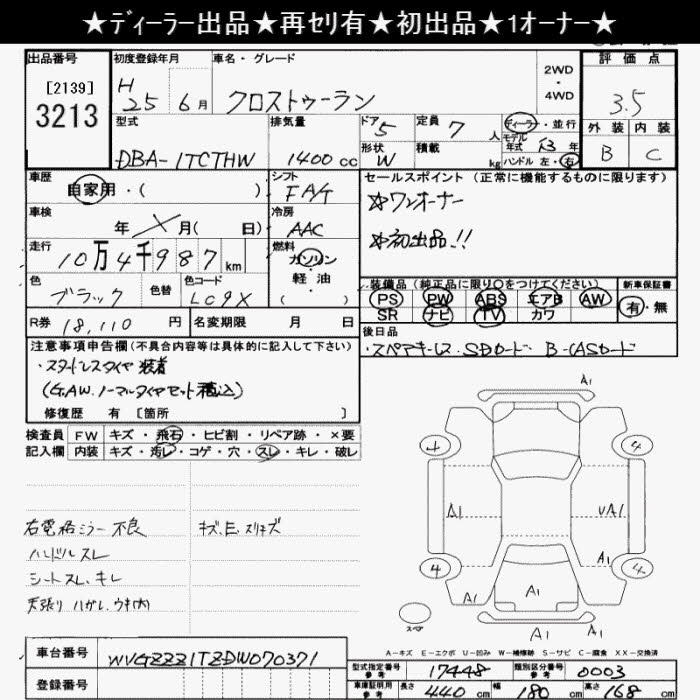 ★ディーラー出品★再セリ有★初出品★1オーナー★
出品番号
[2139]
3213
初度登録年月
H 25 6月
車名・グレード
クロストゥーラン
2WD
・
4WD
評価点
3.5
外装 内装
B C
型式
DBA-1TCTHW
排気量
1400 cc
ドア 5
形状 W
定員 7 人
積載 kg
ディーラー・並行
モデル年式 13 年
ハンドル 左・右
車歴
自家用・( )
シフト
FAT
車検
年 月( 日)
冷房
AAC
走行
10万4千987 km
燃料
ガソリン
・
軽油
・
( )
色
ブラック
色替
色コード
LC9X
R券 18,110 円
名変期限 月 日
セールスポイント (正常に機能するものに限ります)
☆ワンオーナー
☆初出品!!
装備品(純正品に限り○をつけてください)
PS PW ABS エアB AW
SR ナビ TV カワ
新車保証書
有・無
後日品
・スペアキーレス・SDカード・B-CASカード
注意事項申告欄(不具合内容等は具体的に記入して下さい)
・スタッドレスタイヤ装着
(G.AW.ノーマルタイヤセット積込)
修復歴 有 [箇所 ]
検査員
記入欄
FW キズ・飛石・ヒビ割・リペア跡・×要
内装 キズ・汚レ・コゲ・穴・スレ・キレ・破レ
右電格ミラー不良
キズ,E,スリキズ
ハンドルスレ
シートスレ,キレ
天張りハガレ,ウキ
A1
4 4
A1 UA1
A1
4 4
A1
A1 A1
スペア
A-キズ E-エクボ U-凹み W-補修跡 S-サビ C-腐食 XX-交換済
車台番号
WVGZZZ1TZDW070371
登録番号
型式指定番号
参考
17448
類別区分番号
参考
0003
車庫証明用
参考
長さ 440 cm
幅 180 cm
高さ 168 cm